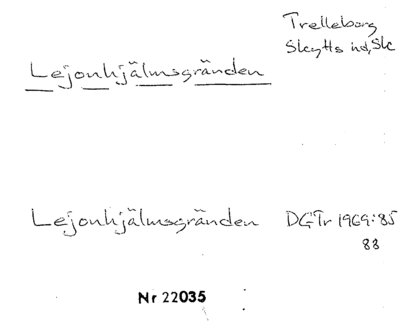 Trelleborg
Skytts hd, Sk
Lejonhjälmsgränden
Lejonhjälmsgränden DGTr 1969:85
88
Nr 22035